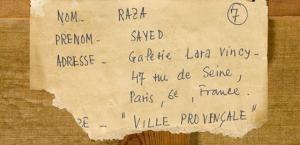 NOM_ RAZA
7
PRENOM_ SAYED
ADRESSE _ Galerie Lara Vincy_
47 rue de Seine,
Paris, 6è, France.
RE_ "VILLE PROVINÇALE"